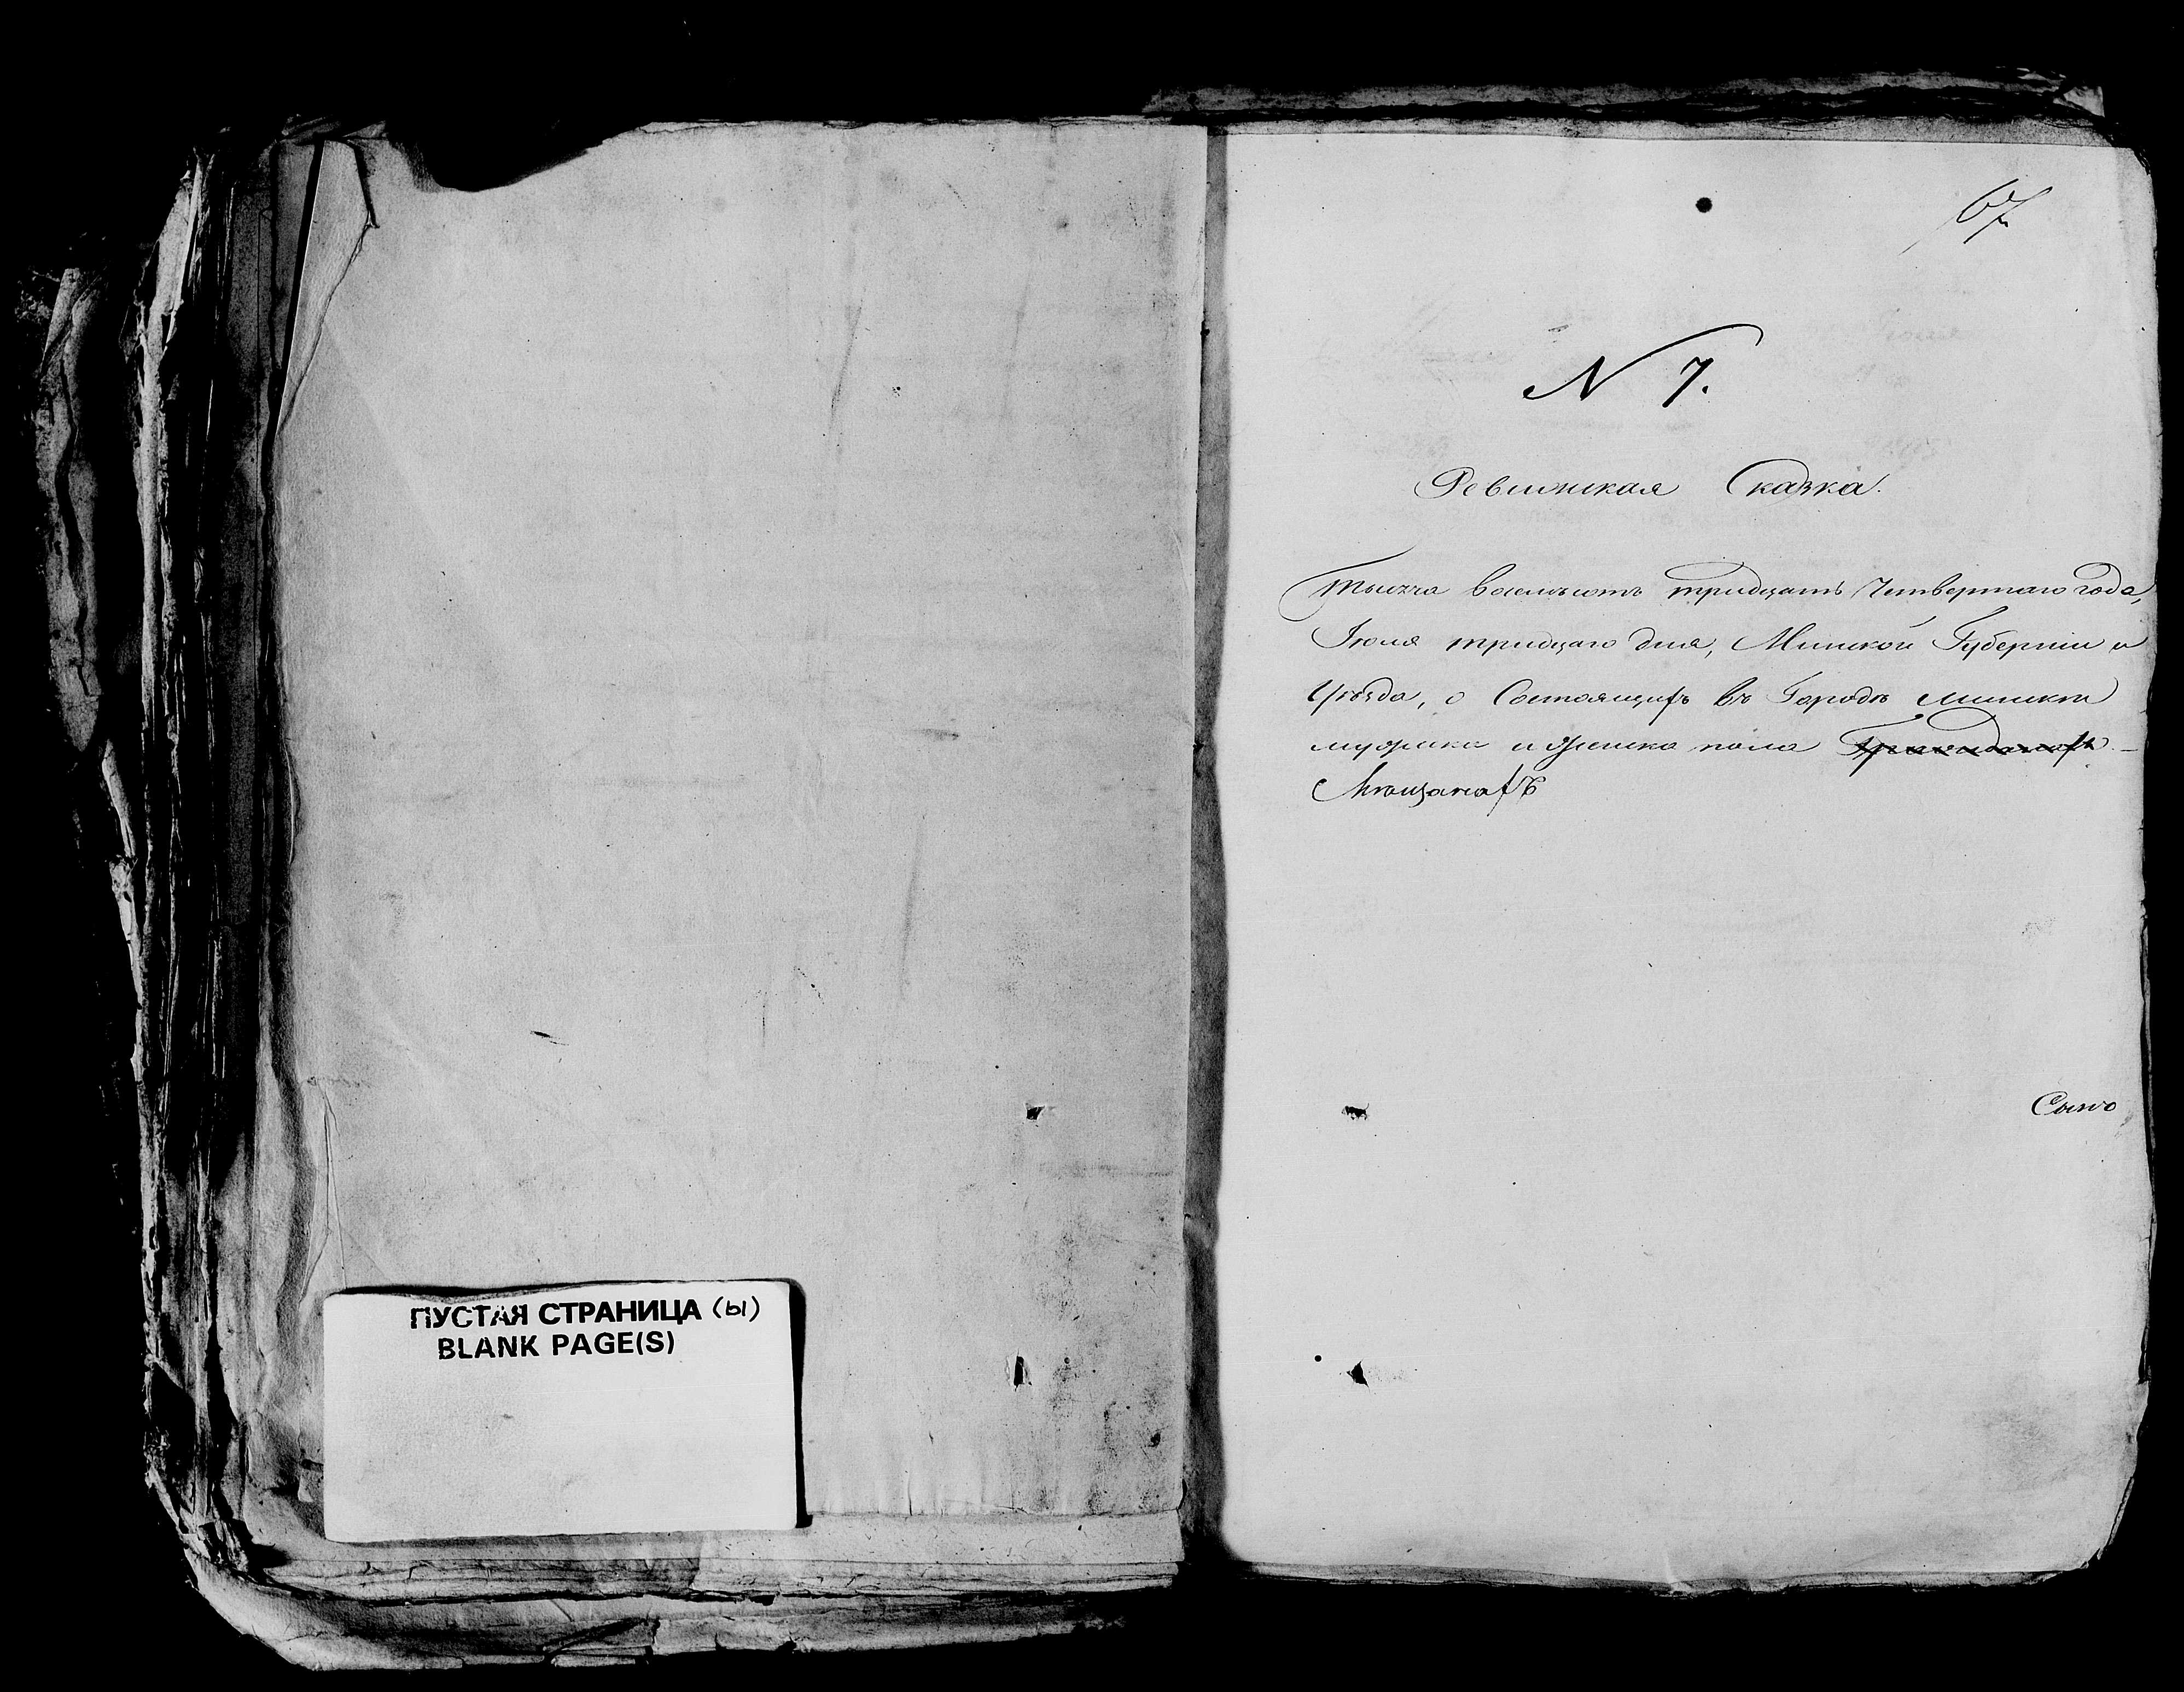 ПУСТАЯ СТРАНИЦА (Ы)
BLANK PAGE(S)
67
N 7.
Ревизская Сказка.
Тысяча восемьсотъ тридцать Четвертаго года,
Іюля тридцаго дня, Минской Губерніи и
Уѣзда, о Состоящихъ въ Городѣ Минскѣ
мужска и женска пола Гражданахъ
Мѣщанахъ